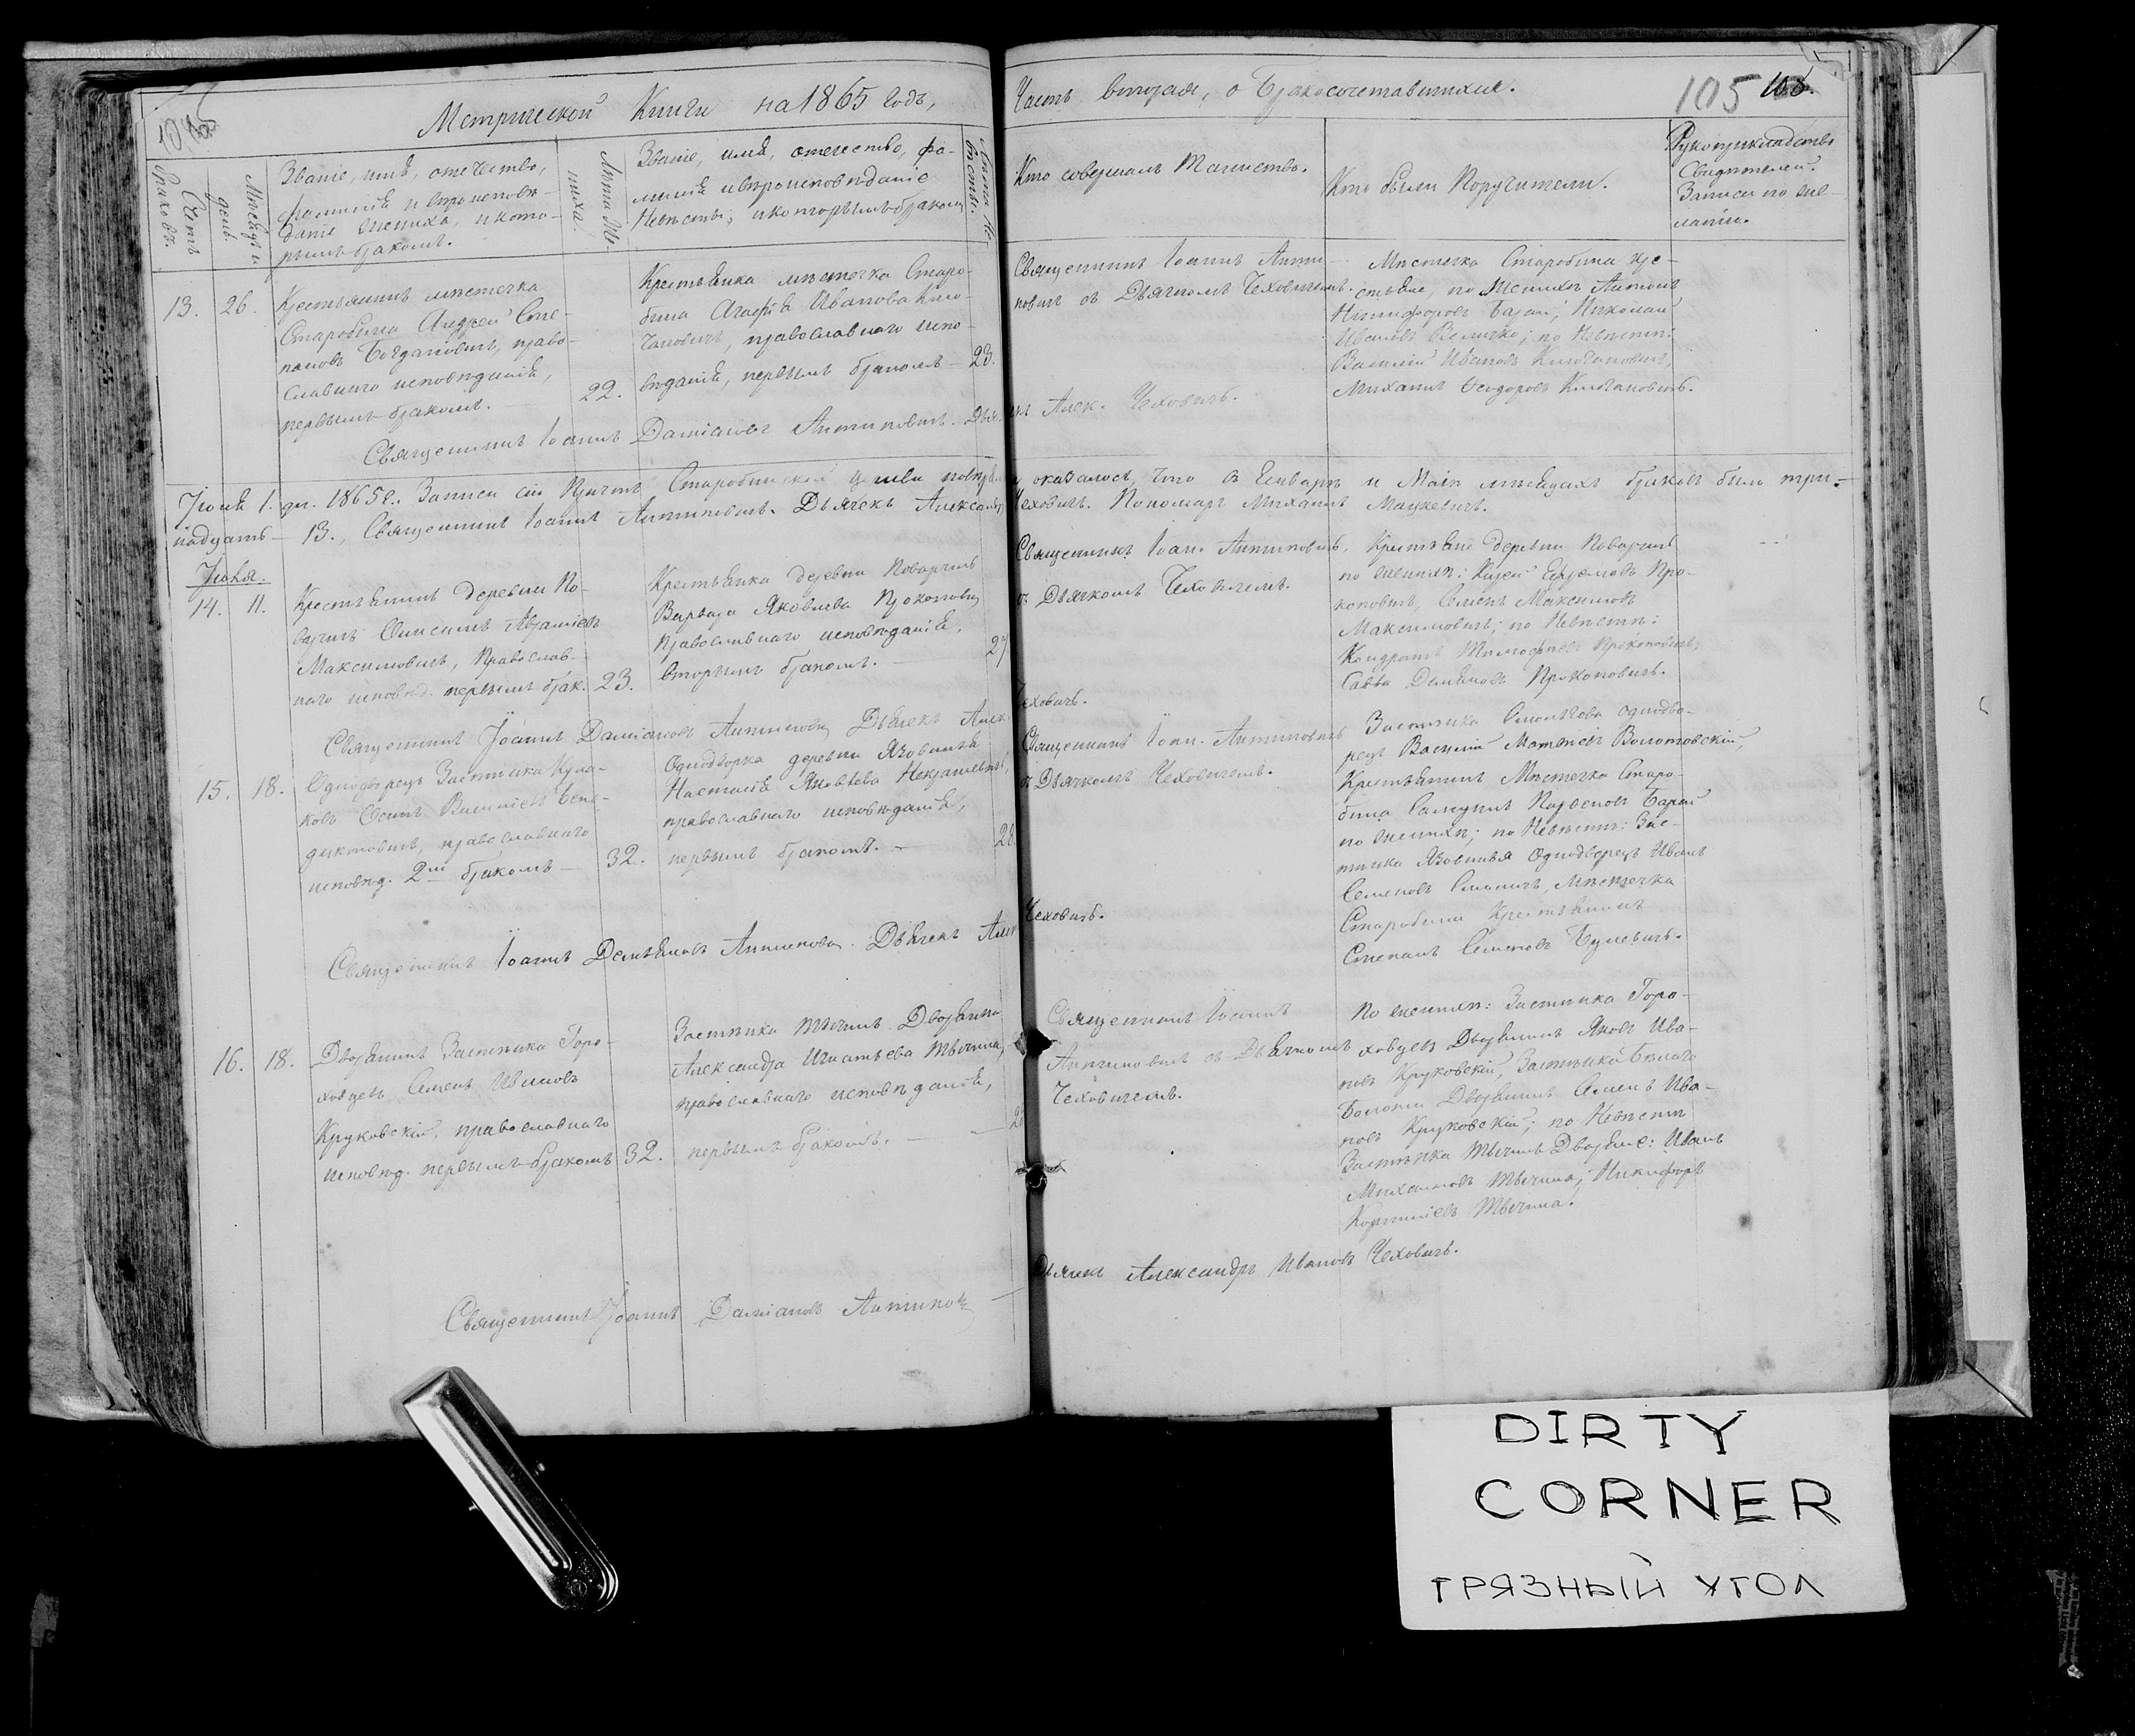 Метрической Книги на 1865 годъ,
Часть вторая, о Бракосочетавшихся.
105
Счетъ Браковъ.
Мѣсяцъ и день.
Званіе, имя, отечество,
фамилія и вѣроисповѣ-
даніе жениха, и кото-
рымъ бракомъ.
Лѣта Же-
ниха.
Званіе, имя, отечество, фа-
милія и вѣроисповѣданіе
Невѣсты, и которымъ бракомъ
Лѣта Не-
вѣсты.
Кто совершалъ Таинство.
Кто были Поручители.
Рукоприкладство
Свидѣтелей
Записи по же-
ланію.
13. 26.
Крестьянинъ мѣстечка
Старобина Андрей Сте-
пановъ Богдановичъ, право-
славнаго исповѣданія,
первымъ бракомъ.
22.
Крестьянка мѣстечка Старо-
бина Агафія Иванова Клю-
чановичъ, православнаго испо-
вѣданія, первымъ бракомъ —
23.
Священникъ Іоаннъ Анти-
повичъ съ Дьячкомъ Чеховичемъ.
Мѣстечка Старобина кре-
стьяне, по Женихѣ Антонъ
Никифоровъ Барай, Николай
Ивановъ Величко; по Невѣстѣ:
Василій Ивановъ Ключановичъ,
Михаилъ Ѳеодоровъ Ключановичъ.
Священникъ Іоаннъ Даміановъ Антиповичъ. Дьячекъ Алек. Чеховичъ.
Іюня 1. дн. 1865 г. Записи сіи Причтъ Старобинской церкви повѣрялъ и оказалось, что въ Генварѣ и Маіи мѣсяцахъ браковъ было три-
надцать — 13., Священникъ Іоаннъ Антиповичъ. Дьячекъ Александръ Чеховичъ. Пономарь Михаилъ Мацкевичъ.
Іюля.
14. 11.
Крестьянинъ деревни По-
варчичъ Онисимъ Авраміевъ
Максимовичъ, Православ-
наго исповѣд. первымъ брак.
23.
Крестьянка деревни Поварчичъ
Варвара Яковлева Прокоповичъ
Православнаго исповѣданія,
вторымъ бракомъ. —
27.
Священникъ Іоан. Антиповичъ,
съ Дьячкомъ Чеховичемъ.
Крестьяне деревни Поварчичъ
по женихѣ: Ефремовъ Про-
коповичъ, Семенъ Максимовъ
Максимовичъ; по Невѣстѣ:
Кондратъ Тимофеевъ Прокоповичъ,
Савва Демьяновъ Прокоповичъ.
Священникъ Іоаннъ Даміановъ Антиповичъ Дьячекъ Алек. Чеховичъ.
15. 18.
Однодворецъ Застѣнка
Осипъ Василіевъ Бене-
диктовичъ, православнаго
исповѣд. 2мъ бракомъ —
32.
Однодворка деревни Язовинья
Настасія Яковлева Некрашевичъ,
православнаго исповѣданія,
первымъ бракомъ. —
28.
Священникъ Іоан. Антиповичъ
съ Дьячкомъ Чеховичемъ.
Застѣнка Смолѣгова однодво-
рецъ Василій Матѳіевъ Волотовскій,
Крестьянинъ Мѣстечка Старо-
бина Самуилъ Парѳеновъ Барай
по женихѣ; по Невѣстѣ: Зас-
тѣнка Язовинья Однодворецъ Иванъ
Семеновъ Мѣстечка
Старобина Крестьянинъ
Степанъ Семеновъ
Священникъ Іоаннъ Демьяновъ Антиповичъ. Дьячекъ Алек. Чеховичъ.
16. 18.
Дворянинъ Застѣнка Горо-
ховцевъ Семенъ Ивановъ
Круковскій, православнаго
исповѣд. первымъ бракомъ
32.
Застѣнка Тычинъ Дворянка
Александра Игнатьева Тычина,
православнаго исповѣданія,
первымъ бракомъ. —
Священникъ Іоаннъ
Антиповичъ съ Дьячкомъ
Чеховичемъ.
По женихѣ: Застѣнка Горо-
ховцевъ Дворянинъ Яковъ Ива-
новъ Круковскій, Застѣнка Бѣлаго
Болота Дворянинъ Семенъ Ива-
новъ Круковскій; по Невѣстѣ
Застѣнка Тычинъ Дворяне: Иванъ
Михаиловъ Тычина, Никифоръ
Корниліевъ Тычина.
Священникъ Іоаннъ Даміановъ Антиповичъ
Дьячекъ Александръ Ивановъ Чеховичъ.
DIRTY
CORNER
ГРЯЗНЫЙ УГОЛ